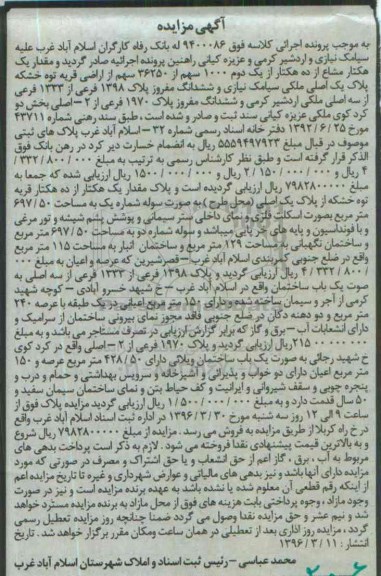 آگهی مزایده
به موجب پرونده اجرائی کلاسه فوق ۹۴۰۰۰۸۶ له بانک رفاه کارگران اسلام آباد غرب علیه
سیامک نیازی و اردشیر کرمی و عزیزه کیانی راهنین پرونده اجرائیه صادر گردید و مقدار یک
هکتار مشاع از ده هکتار از یک دوم ۱۰۰۰ سهم از ۳۶۲۵۰ سهم از اراضی قریه توه خشکه
پلاک یک اصلی ملکی سیامک نیازی و ششدانگ مفروز پلاک ۱۳۹۸ فرعی از ۱۳۳۳ فرعی
از سه اصلی ملکی اردشیر کرمی و ششدانگ مفروز پلاک ۱۹۷۰ فرعی از ۲ – اصلی بخش دو
کرد کوی ملکی عزیزه کیانی سند ثبت و صادر و شده است ، طبق سند رهنی شماره ۴۳۷۱۱
مورخ ۲۵ / ۶ / ۱۳۹۲ دفتر خانه اسناد رسمی شماره ۳۲ – اسلام آباد غرب پلاک های ثبتی
موصوف در قبال مبلغ ۵۵۵۹۴۹۷۹۲۳ ریال به انضمام خسارت دیر کرد در رهن بانک فوق
الذکر قرار گرفته است و طبق نظر کارشناس رسمی به ترتیب به مبلغ ۸۰۰ / ۰۰۰ / ۳۳۲ /
۴ ریال و ۰۰۰ / ۰۰۰ / ۱۵۰ / ۲ ریال و ۰۰۰ / ۰۰۰ / ۱۵۰۰ ریال ارزیابی شده که جمعا به
مبلغ ۷۹۸۲۸۰۰۰۰۰ ریال ارزیابی گردیده است و پلاک مقدار یک هکتار از ده هکتار قریه
توه خشکه از پلاک یک اصلی (محل طرح) به صورت سوله شماره یک به مساحت ۵۰ / ۶۹۷
متر مربع بصورت اسکلت فلزی و نمای داخلی ستر سیمانی و پوشش پشم شیشه و تور مرغی
و با فونداسیون و پایه های میباشد و سوله شماره دو به مساحت ۵۰ / ۶۹۷ متر مربع
و ساختمان نگهبانی به مساحت ۱۲۹ متر مربع و ساختمان انبار به مساحت ۱۱۵ متر مربع
واقع در ضلع جنوبی کمربندی اسلام آباد غرب – قصرشیرین که عرصه و اعیان به مبلغ ۰۰۰
/ ۸۰۰ / ۳۳۲ / ۴ ریال ارزیابی گردید و پلاک ۱۳۹۸ فرعی از ۱۳۳۳ فرعی از سه اصلی به
صوت یک باب ساختمان واقع در اسلام آباد غرب – خ شهید خسرو آبادی – کوچه شهید
کرمی از آجر و سیمان ساخته شده و دارای ۱۵۰ متر مربع اعیانی در یک طبقه با عرصه ۲۴۰
متر مربع و دو دهنه دکان در ضلع جنوبی فاقد مجوز نمای بیرونی ساختمان از سرامیک و
دارای انشعابات آب – برق و گاز که برابر گزارش ارزیابی در تصرف مستاجر می باشد و به مبلغ
۲۱۵۰۰۰۰۰۰۰ ریال ارزیابی گردید و پلاک ۱۹۷۰ فرعی از ۲ – اصلی واقع در کرد کوی
خ شهید رجائی به صورت یک باب ساختمان ویلائی دارای ۵۰ / ۴۲۸ متر مربع عرصه و ۱۵۰
متر مربع اعیان دارای دو خواب و پذیرائی و آشپزخانه و سرویس بهداشتی و حمام و درب و
پنجره چوبی و سقف شیروانی و ایرانیت و کف حیاط بتن و نمای ساختمان سیمان سفید و
۵۰ سال قدمت دارد و به مبلغ ۰۰۰ / ۰۰۰ / ۵۰۰ / ۱ ریال ارزیابی گردید مزایده پلاک فوق از
ساعت ۹ الی ۱۲ روز سه شنبه مورخ ۳۰ / ۳ / ۱۳۹۶ در اداره ثبت اسناد اسلام آباد غرب واقع
در خ راه کربلا از طریق مزایده به فروش می رسد . مزایده از مبلغ ۷۹۸۲۸۰۰۰۰۰ ریال شروع
و به بالاترین قیمت پیشنهادی نقدا فروخته می شود . لازم به ذکر است پرداخت بدهی های
مربوط به آب ، برق ، گاز اعم از حق انشعاب و یا حق اشتراک و مصرف در صورتی که مورد
مزایده دارای آنها باشد و نیز بدهی های مالیاتی و عوارض شهرداری و غیره تا تاریخ مزایده اعم
از اینکه رقم قطعی آن معلوم شده یا نشده باشد به عهده برنده مزایده است و نیز در صورت
وجود مازاد ، وجوه پرداختی بابت هزینه های فوق از محل مازاد به برنده مزایده مسترد خواهد
شد و نیم عشر و حق مزایده نقدا وصول می گردد ضمنا چنانچه روز مزایده تعطیل رسمی
گردد ، مزایده روز اداری بعد از تعطیلی در همان ساعت ومکان مقرر برگزار خواهد شد . تاریخ
انتشار : ۱۱ / ۳ / ۱۳۹۶
محمد عباسی – رئیس ثبت اسناد و املاک شهرستان اسلام آباد غرب